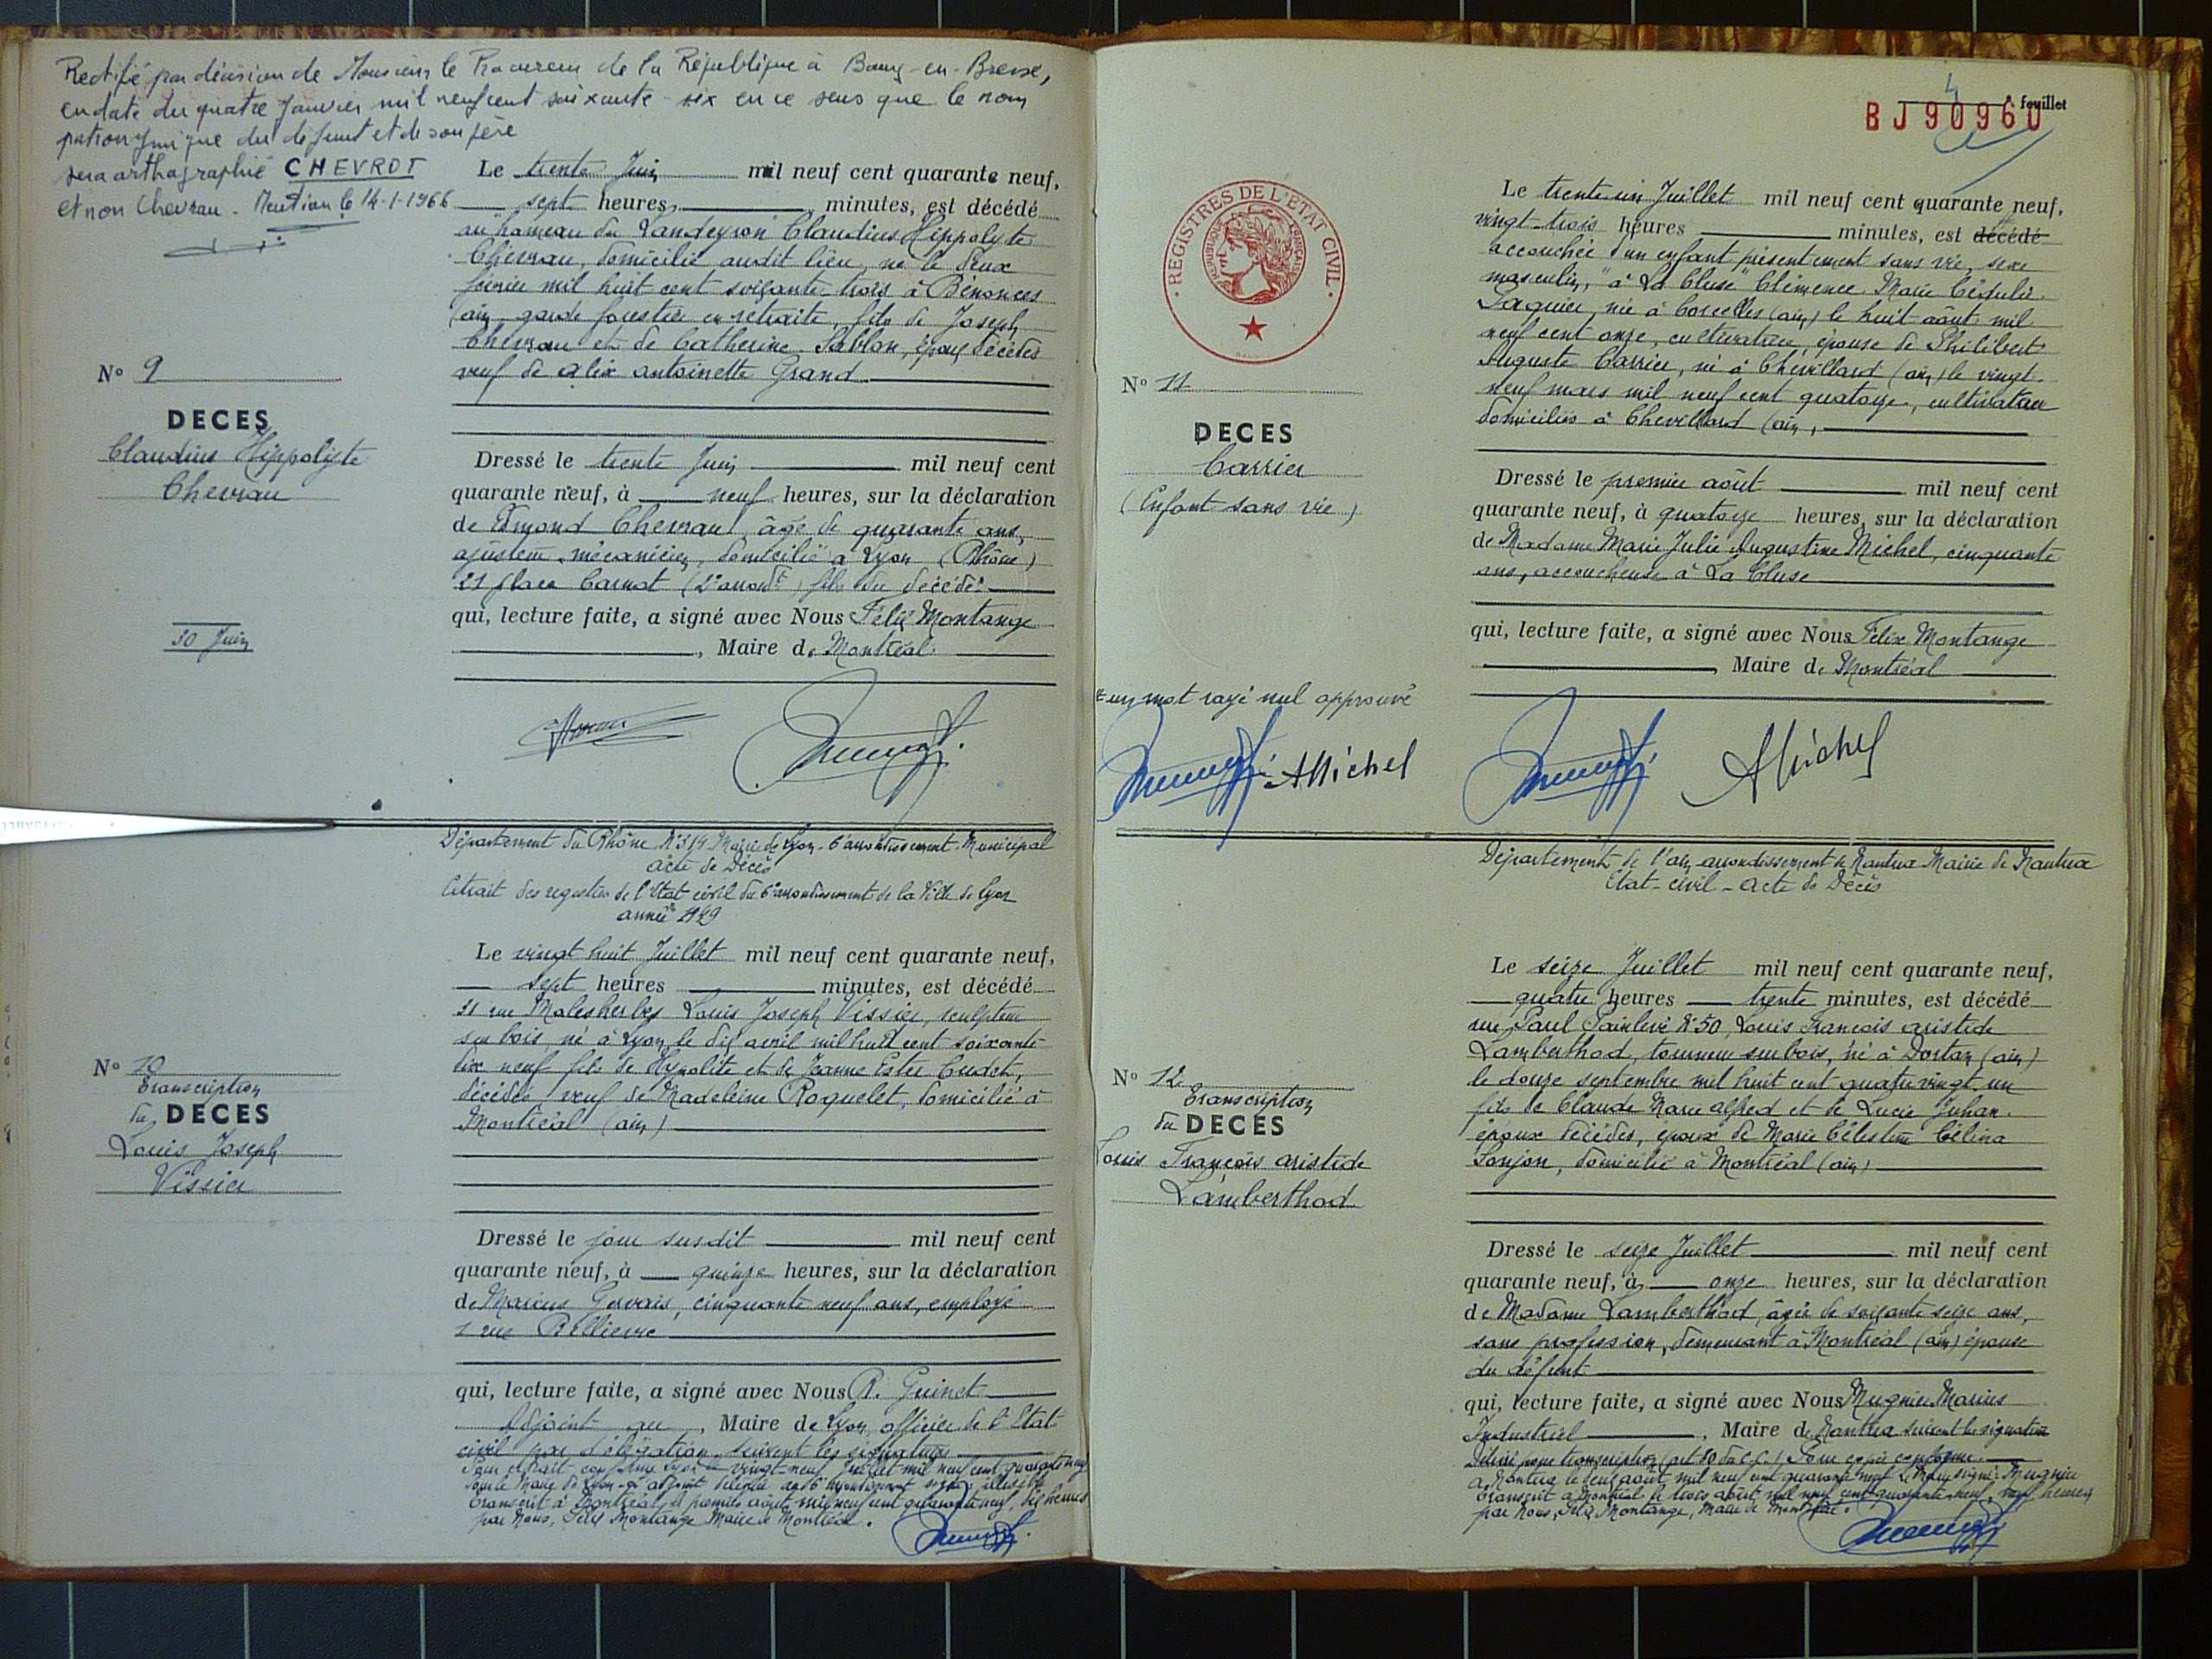 Rectifié par décision de Monsieur le Procureur de la République à Bourg-en-Bresse,
en date du quatre Janvier mil neuf cent soixante-six en ce sens que le nom
patronymique du défunt et de son père
sera orthographié CHEVROT
et non Chevrau. Mention le 14-1-1966
Le trente Juin mil neuf cent quarante neuf,
sept heures, minutes, est décédé
au hameau du Landeyron Claudius Hippolyte
Chevrau, domicilié audit lieu, né le deux
février mil huit cent soixante-trois à Bénonces
(ain, garde forestier en retraite, fils de Joseph
Chevrau et de Catherine Sablon, époux décédés
veuf de alix antoinette Grand
N° 9
DECES
Claudius Hippolyte
Chevrau
30 Juin
Dressé le trente Juin mil neuf cent
quarante neuf, à neuf heures, sur la déclaration
de Edmond Chevrau, âgé de quarante ans,
ajusteur-mécanicien, domicilié à Lyon (Rhône)
21 place Carnot (2e arrondt) fils du décédé
qui, lecture faite, a signé avec Nous Félix Montange
, Maire de Montréal
Département du Rhône N°314 Mairie de Lyon - 6e arrondissement Municipal
acte de Décès
Extrait des registres de l'Etat civil du 6e arrondissement de la Ville de Lyon
année 1949
Le vingt huit Juillet mil neuf cent quarante neuf,
sept heures minutes, est décédé
31 rue Malesherbes Louis Joseph Vissier, sculpteur
sur bois, né à Lyon, le dix avril mil huit cent soixante
dix neuf fils de Hypolite et de Jeanne Ester Cudet,
décédés, veuf de Madeleine Roquelet, domicilié à
Montréal (ain)
N° 10
Transcription
du DECES
Louis Joseph
Vissier
Dressé le jour susdit mil neuf cent
quarante neuf, à quinze heures, sur la déclaration
de Marius Gervais, cinquante neuf ans, employé
1 rue Bellievre
qui, lecture faite, a signé avec Nous R. Guinet
Adjoint au, Maire de Lyon, officier de l'Etat
civil par délégation, suivent les signatures
Pour extrait conforme Lyon le vingt-neuf Juillet mil neuf cent quarante neuf
Pour le Maire de Lyon adjoint délégué au 6e arrondissement signé: illisible
Transcrit à Montréal, le premier août mil neuf cent quarante neuf, dix heures
par Nous, Félix Montange Maire de Montréal.
4 e feuillet
BJ90960
REGISTRES DE L'ETAT CIVIL
REPUBLIQUE FRANCAISE
Le trente-un Juillet mil neuf cent quarante neuf,
vingt-trois heures minutes, est décédé
accouchée d'un enfant présentement sans vie, sexe
masculin, "à La Cluse" Clémence Marie Cédulie
Jaquier, née à Corcelles (ain) le huit août mil
neuf cent onze, cultivatrice, épouse de Philibert
Auguste Carrier, né à Chevillard (ain) le vingt-
neuf mars mil neuf cent quatorze, cultivateur
domiciliés à Chevillard (ain,
N° 11
DECES
Carrier
(Enfant sans vie)
Dressé le premier août mil neuf cent
quarante neuf, à quatorze heures, sur la déclaration
de Madame Marie Julie Augustine Michel, cinquante
ans, accoucheuse à La Cluse
qui, lecture faite, a signé avec Nous Félix Montange
, Maire de Montréal
un mot rayé nul approuvé
AMichel
AMichel
Département de l'ain arrondissement de Nantua Mairie de Nantua
Etat-civil - acte de Décès
Le seize Juillet mil neuf cent quarante neuf,
quatre heures trente minutes, est décédé
rue Paul Painlevé N°50, Louis François aristide
Lamberthod, tourneur sur bois, né à Dortan (ain)
le douze septembre mil huit cent quatre vingt-un
fils de Claude Marie alfred et de Lucie Juhan
époux décédés, époux de Marie Célestine Célina
Sonjon, domicilié à Montréal (ain)
N° 12
Transcription
du DECES
Louis François aristide
Lamberthod
Dressé le seize Juillet mil neuf cent
quarante neuf, à onze heures, sur la déclaration
de Madame Lamberthod, âgée de soixante seize ans,
sans profession, demeurant à Montréal (ain) épouse
du défunt
qui, lecture faite, a signé avec Nous Mugnier Marius
Industriel, Maire de Nantua suivent les signatures
Délivré pour transcription (art 80 du C.C.) Pour copie conforme.
a Nantua le deux août mil neuf cent quarante neuf Le Maire signé: Mugnier
Transcrit à Montréal le trois août mil neuf cent quarante neuf, neuf heures
par Nous, Félix Montange, Maire de Montréal.